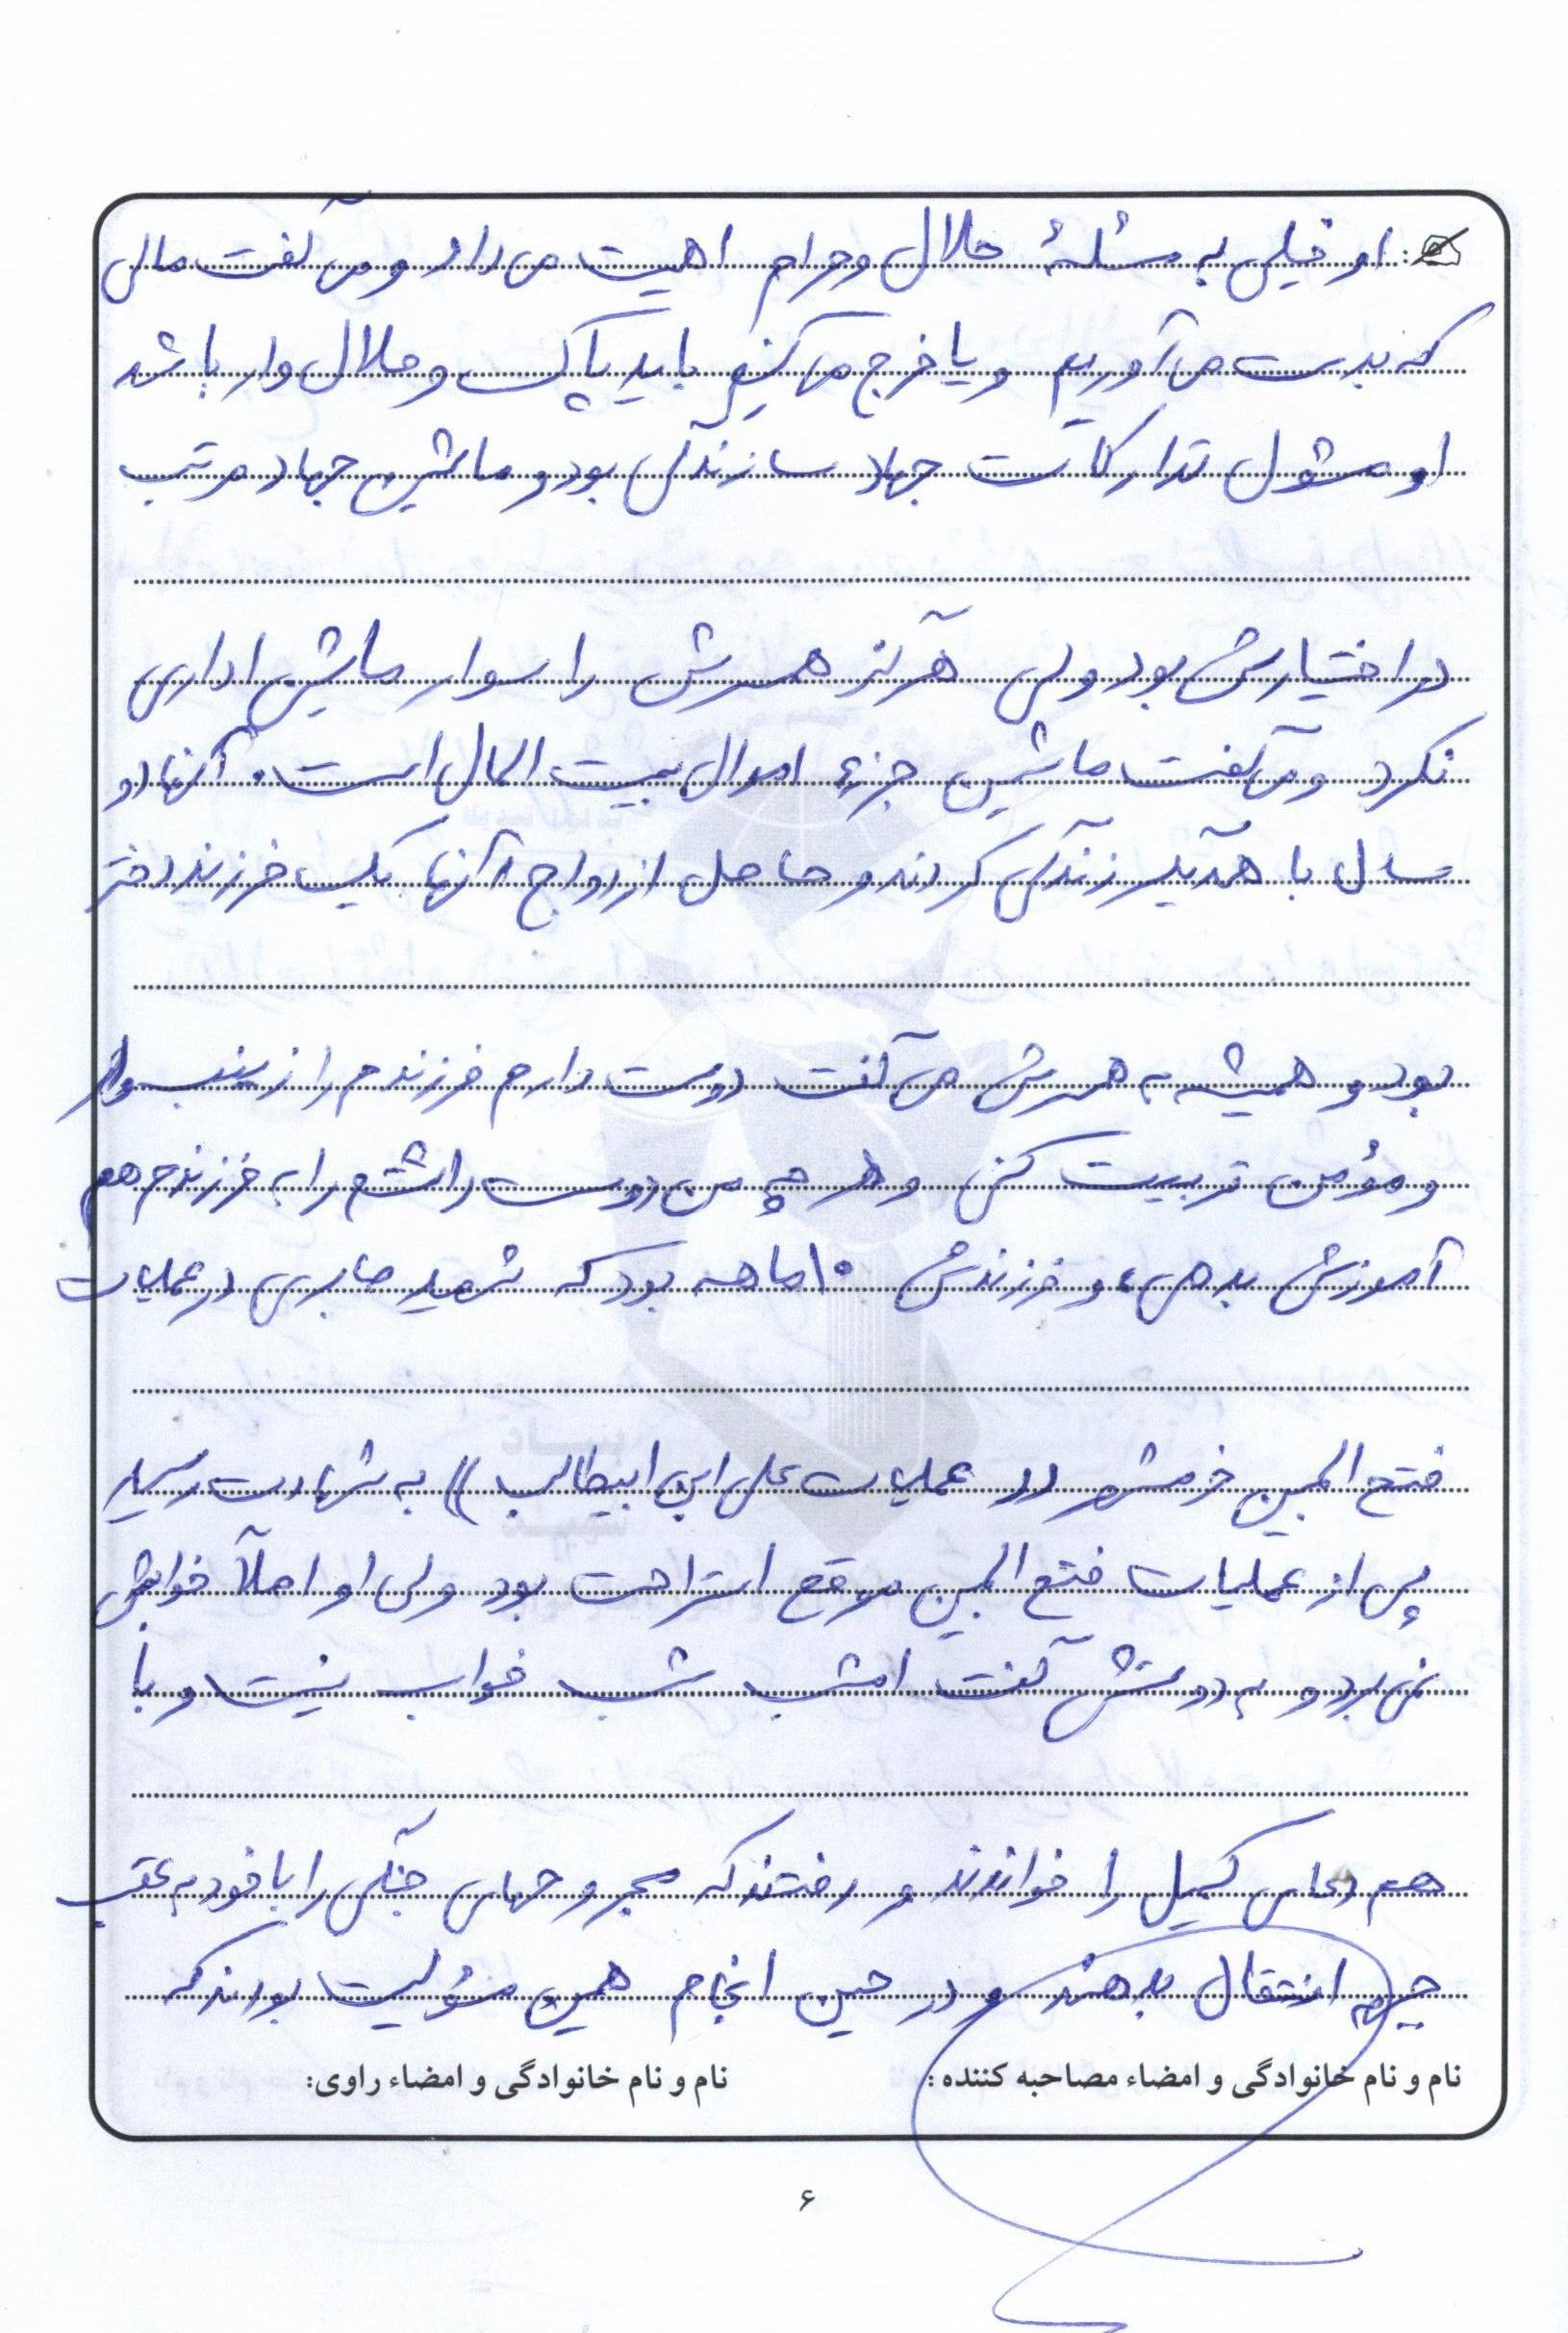 او خیلی به مسئلهٔ حلال و حرام اهمیت می داد و می گفت مالی
که بدست می آوریم و یا خرج می کنیم باید پاک و حلال وار باشد
او مسئول تدارکات جهاد سازندگی بود و ماشین جهاد مرتب
در اختیارش بود ولی هرگز همسرش را سوار ماشین اداری
نکرد و می گفت ماشین جزء اموال بیت المال است. آنها دو
سال با همدیگر زندگی کردند و حاصل ازدواج آنها یک فرزند دختر
بود و همیشه به همسرش می گفت دوست دارم فرزندم را زینب وار
و مؤمن تربیت کنی و هر چه من دوست داشتم را به فرزندم هم
آموزش بدهی، و فرزندش ۱۰ ماهه بود که شهید صابری در عملیات
فتح المبین خرمشهر در عملیات علی ابن ابیطالب )) به شهادت رسید
پس از عملیات فتح المبین موقع استراحت بود ولی او اصلاً خوابش
نمی برد و به دوستش گفت امشب شب خواب نیست و با
هم دعای کمیل را خواندند و رفتند که مجروحهای جنگی را با خود به عقب
جبهه انتقال بدهند و در حین انجام همین مسؤلیت بودند که
نام و نام خانوادگی و امضاء مصاحبه کننده: نام و نام خانوادگی و امضاء راوی:
۶